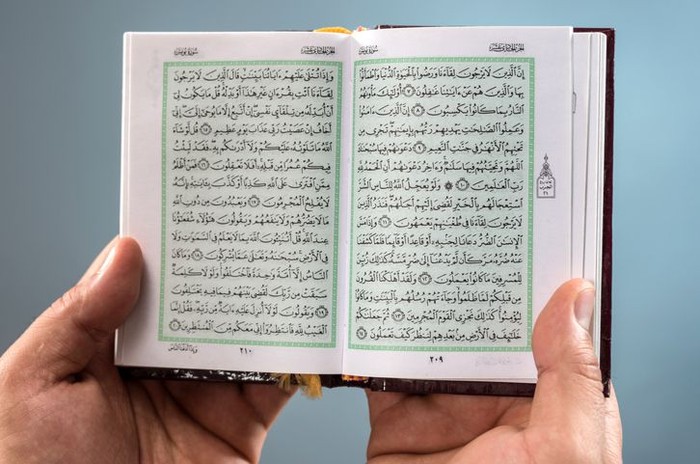 سُورَةُ يُونُسَ
الجُزْءُ الحَادِي عَشَرَ
إِنَّ ٱلَّذِينَ لَا يَرْجُونَ لِقَآءَنَا وَرَضُوا۟ بِٱلْحَيَوٰةِ ٱلدُّنْيَا وَٱطْمَأَنُّوا۟
بِهَا وَٱلَّذِينَ هُمْ عَنْ ءَايَٰتِنَا غَٰفِلُونَ ٧ أُو۟لَٰٓئِكَ مَأْوَىٰهُمُ
ٱلنَّارُ بِمَا كَانُوا۟ يَكْسِبُونَ ٨ إِنَّ ٱلَّذِينَ ءَامَنُوا۟
وَعَمِلُوا۟ ٱلصَّٰلِحَٰتِ يَهْدِيهِمْ رَبُّهُم بِإِيمَٰنِهِمْ تَجْرِى مِن
تَحْتِهِمُ ٱلْأَنْهَٰرُ فِى جَنَّٰتِ ٱلنَّعِيمِ ٩ دَعْوَىٰهُمْ فِيهَا سُبْحَٰنَكَ
ٱللَّهُمَّ وَتَحِيَّتُهُمْ فِيهَا سَلَٰمٌ وَءَاخِرُ دَعْوَىٰهُمْ أَنِ ٱلْحَمْدُ لِلَّهِ
رَبِّ ٱلْعَٰلَمِينَ ١٠ ۞ وَلَوْ يُعَجِّلُ ٱللَّهُ لِلنَّاسِ ٱلشَّرَّ
ٱسْتِعْجَالَهُم بِٱلْخَيْرِ لَقُضِىَ إِلَيْهِمْ أَجَلُهُمْ فَنَذَرُ ٱلَّذِينَ
لَا يَرْجُونَ لِقَآءَنَا فِى طُغْيَٰنِهِمْ يَعْمَهُونَ ١١ وَإِذَا مَسَّ
ٱلْإِنسَٰنَ ٱلضُّرُّ دَعَانَا لِجَنۢبِهِۦٓ أَوْ قَاعِدًا أَوْ قَآئِمًا فَلَمَّا كَشَفْنَا
عَنْهُ ضُرَّهُۥ مَرَّ كَأَن لَّمْ يَدْعُنَآ إِلَىٰ ضُرٍّ مَّسَّهُۥ كَذَٰلِكَ زُيِّنَ
لِلْمُسْرِفِينَ مَا كَانُوا۟ يَعْمَلُونَ ١٢ وَلَقَدْ أَهْلَكْنَا ٱلْقُرُونَ
مِن قَبْلِكُمْ لَمَّا ظَلَمُوا۟ وَجَآءَتْهُمْ رُسُلُهُم بِٱلْبَيِّنَٰتِ وَمَا كَانُوا۟
لِيُؤْمِنُوا۟ كَذَٰلِكَ نَجْزِى ٱلْقَوْمَ ٱلْمُجْرِمِينَ ١٣ ثُمَّ جَعَلْنَٰكُمْ
خَلَٰٓئِفَ فِى ٱلْأَرْضِ مِنۢ بَعْدِهِمْ لِنَنظُرَ كَيْفَ تَعْمَلُونَ ١٤
٢٠٩
سُورَةُ يُونُسَ
الجُزْءُ الحَادِي عَشَرَ
وَإِذَا تُتْلَىٰ عَلَيْهِمْ ءَايَاتُنَا بَيِّنَٰتٍ قَالَ ٱلَّذِينَ لَا يَرْجُونَ
لِقَآءَنَا ٱئْتِ بِقُرْءَانٍ غَيْرِ هَٰذَآ أَوْ بَدِّلْهُ قُلْ مَا يَكُونُ لِىٓ
أَنْ أُبَدِّلَهُۥ مِن تِلْقَآئِ نَفْسِىٓ إِنْ أَتَّبِعُ إِلَّا مَا يُوحَىٰٓ إِلَىَّ إِنِّىٓ
أَخَافُ إِنْ عَصَيْتُ رَبِّى عَذَابَ يَوْمٍ عَظِيمٍ ١٥ قُل لَّوْ شَآءَ
ٱللَّهُ مَا تَلَوْتُهُۥ عَلَيْكُمْ وَلَآ أَدْرَىٰكُم بِهِۦ فَقَدْ لَبِثْتُ
فِيكُمْ عُمُرًا مِّن قَبْلِهِۦٓ أَفَلَا تَعْقِلُونَ ١٦ فَمَنْ أَظْلَمُ
مِمَّنِ ٱفْتَرَىٰ عَلَى ٱللَّهِ كَذِبًا أَوْ كَذَّبَ بِـَٔايَٰتِهِۦٓ إِنَّهُۥ
لَا يُفْلِحُ ٱلْمُجْرِمُونَ ١٧ وَيَعْبُدُونَ مِن دُونِ ٱللَّهِ
مَا لَا يَضُرُّهُمْ وَلَا يَنفَعُهُمْ وَيَقُولُونَ هَٰٓؤُلَآءِ شُفَعَٰٓؤُنَا
عِندَ ٱللَّهِ قُلْ أَتُنَبِّـُٔونَ ٱللَّهَ بِمَا لَا يَعْلَمُ فِى ٱلسَّمَٰوَٰتِ وَلَا
فِى ٱلْأَرْضِ سُبْحَٰنَهُۥ وَتَعَٰلَىٰ عَمَّا يُشْرِكُونَ ١٨ وَمَا كَانَ
ٱلنَّاسُ إِلَّآ أُمَّةً وَٰحِدَةً فَٱخْتَلَفُوا۟ وَلَوْلَا كَلِمَةٌ
سَبَقَتْ مِن رَّبِّكَ لَقُضِىَ بَيْنَهُمْ فِيمَا فِيهِ يَخْتَلِفُونَ
١٩ وَيَقُولُونَ لَوْلَآ أُنزِلَ عَلَيْهِ ءَايَةٌ مِّن رَّبِّهِۦ فَقُلْ إِنَّمَا
ٱلْغَيْبُ لِلَّهِ فَٱنتَظِرُوٓا۟ إِنِّى مَعَكُم مِّنَ ٱلْمُنتَظِرِينَ ٢٠
٢١٠